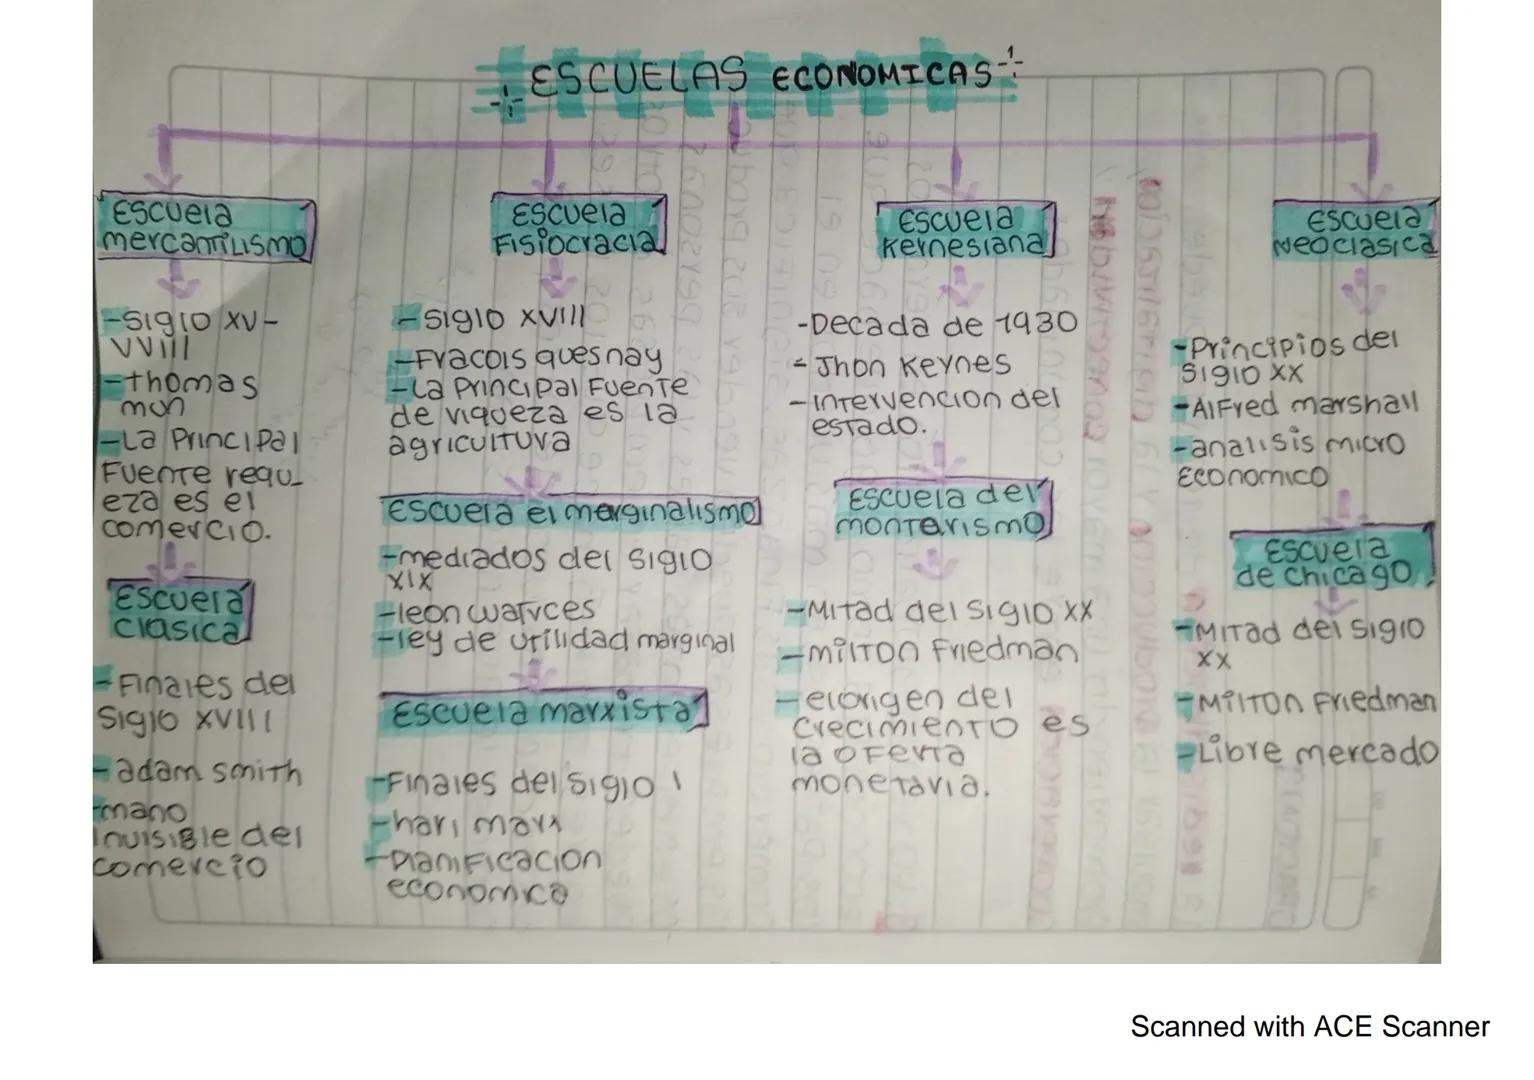 ESCUELAS ECONOMICAS
Escuela
mercantilismo
-Siglo XV-
VVIII
-thomas
mun
-La Principal
Fuente requ-
eza es el
comercio.
Escuela
Clasica
-Finales del
Siglo XVIII
-adam smith
-mano
invisible del
comercio
Escuela
Fisiocracia
-Siglo XVIII
-Fracois quesnay
-La Principal Fuente
de riqueza es la
agricultura
Escuela el marginalismo
-mediados del siglo
XIX
-leon
-ley de utilidad marginal
Escuela marxista
-Finales del siglo
-Planificacion
economica
Escuela
Kernesiana
-Decada de 1930
-Jhon Keynes
-intervencion del
estado.
Escuela del
montarismo
-Mitad del siglo XX
-milton Friedman
-el origen del
crecimiento es
la oferta
monetaria.
Escuela
Neoclasica
-Principios del
siglo XX
-Alfred marshall
-analisis micro
Economico
Escuela
de chicago
-Mitad del siglo
XX
-Milton Friedman
-Libre mercado
Scanned with ACE Scanner